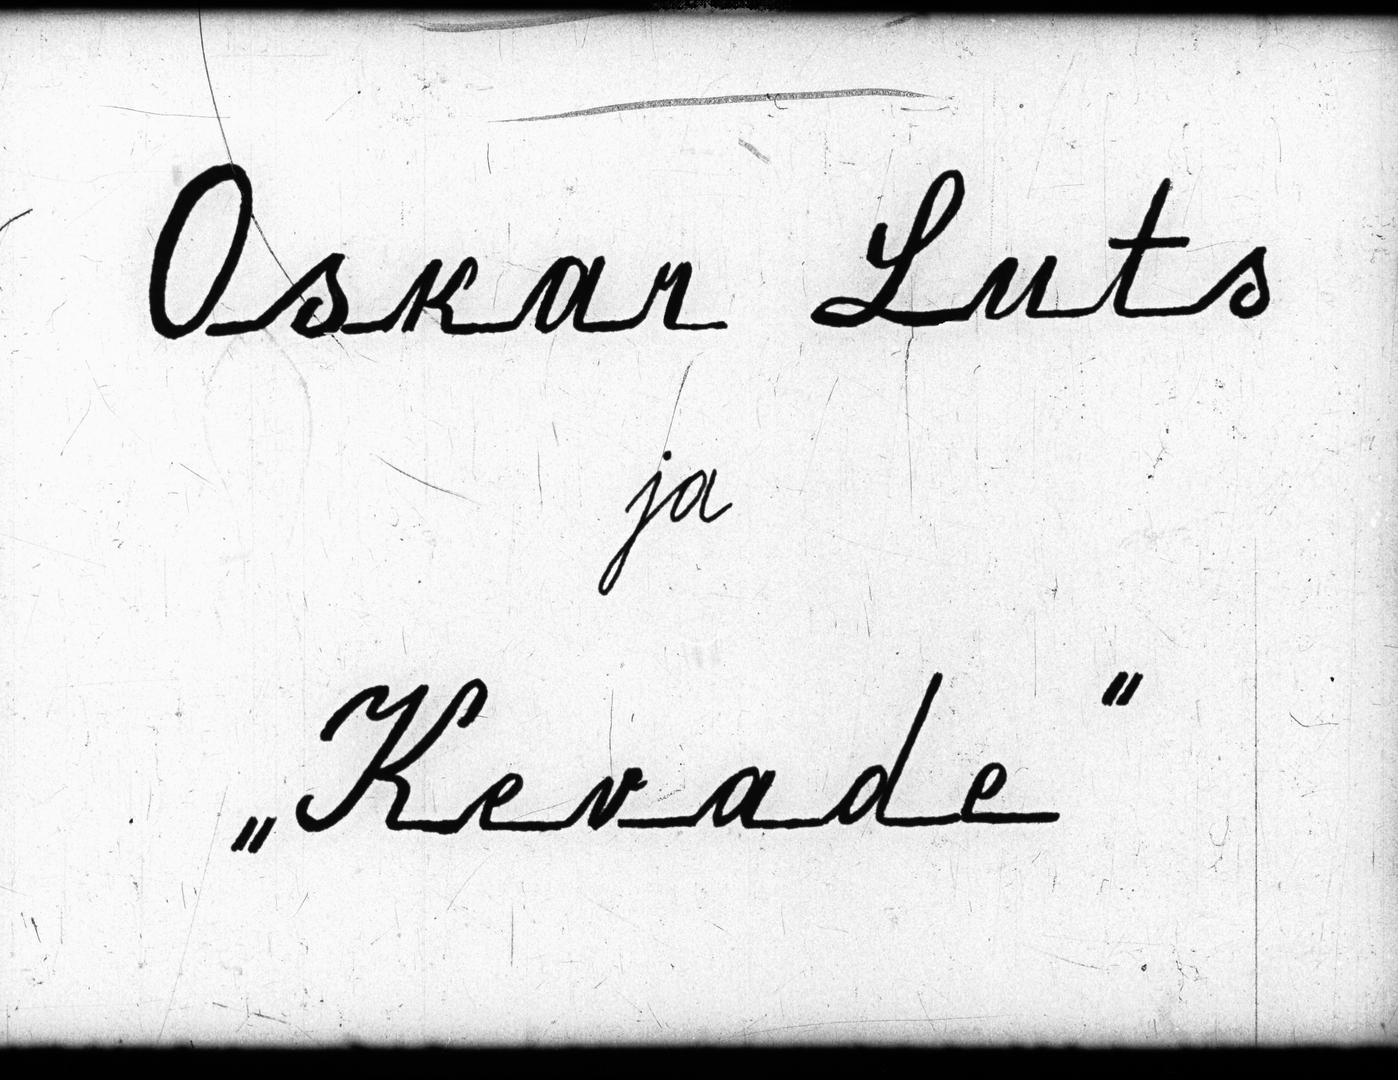 Oskar Luts
ja
„Kevade"